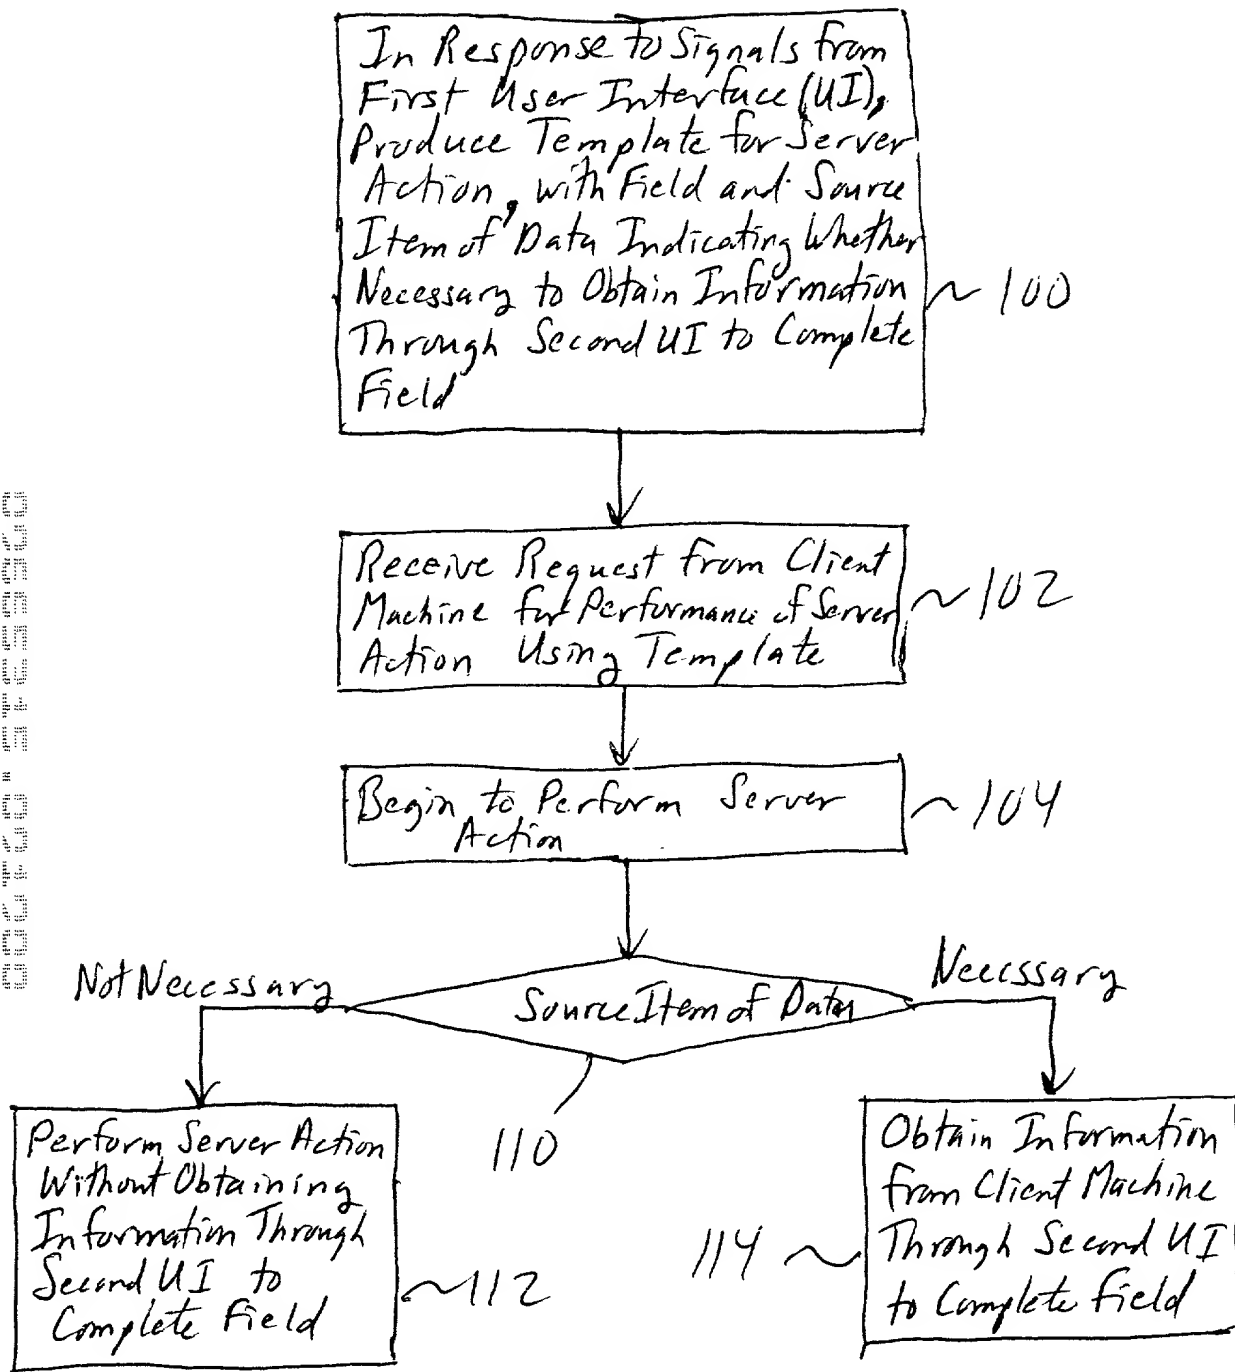 In Response to Signals from
First User Interface (UI),
Produce Template for Server
Action, with Field and Source
Item of Data Indicating Whether
Necessary to Obtain Information
Through Second UI to Complete
Field
~ 100
Receive Request from Client
Machine for Performance of Server
Action Using Template
~ 102
Begin to Perform Server
Action
~ 104
Not Necessary
Necessary
Source Item of Data
110
Perform Server Action
Without Obtaining
Information Through
Second UI to
Complete Field
~112
Obtain Information
from Client Machine
Through Second UI
to Complete Field
114 ~